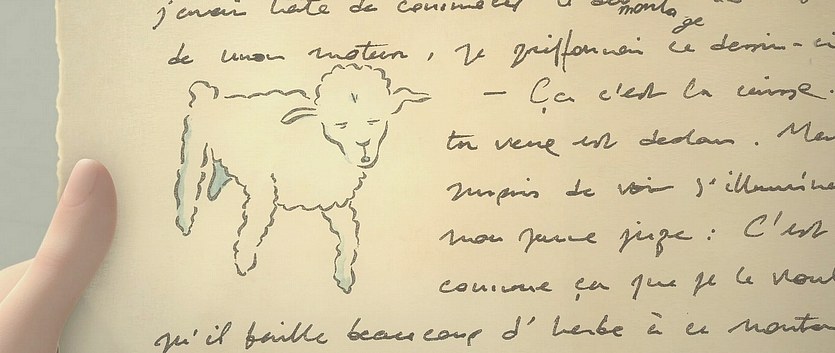 j'avais hâte de commencer le démontage
de mon moteur, je griffonnai ce dessin-ci
– Ça c'est la caisse.
tu veux est dedans. Mais
surpris de voir s'illuminer
mon jeune juge : C'est
comme ça que je le voul
qu'il faille beaucoup d'herbe à ce mouton